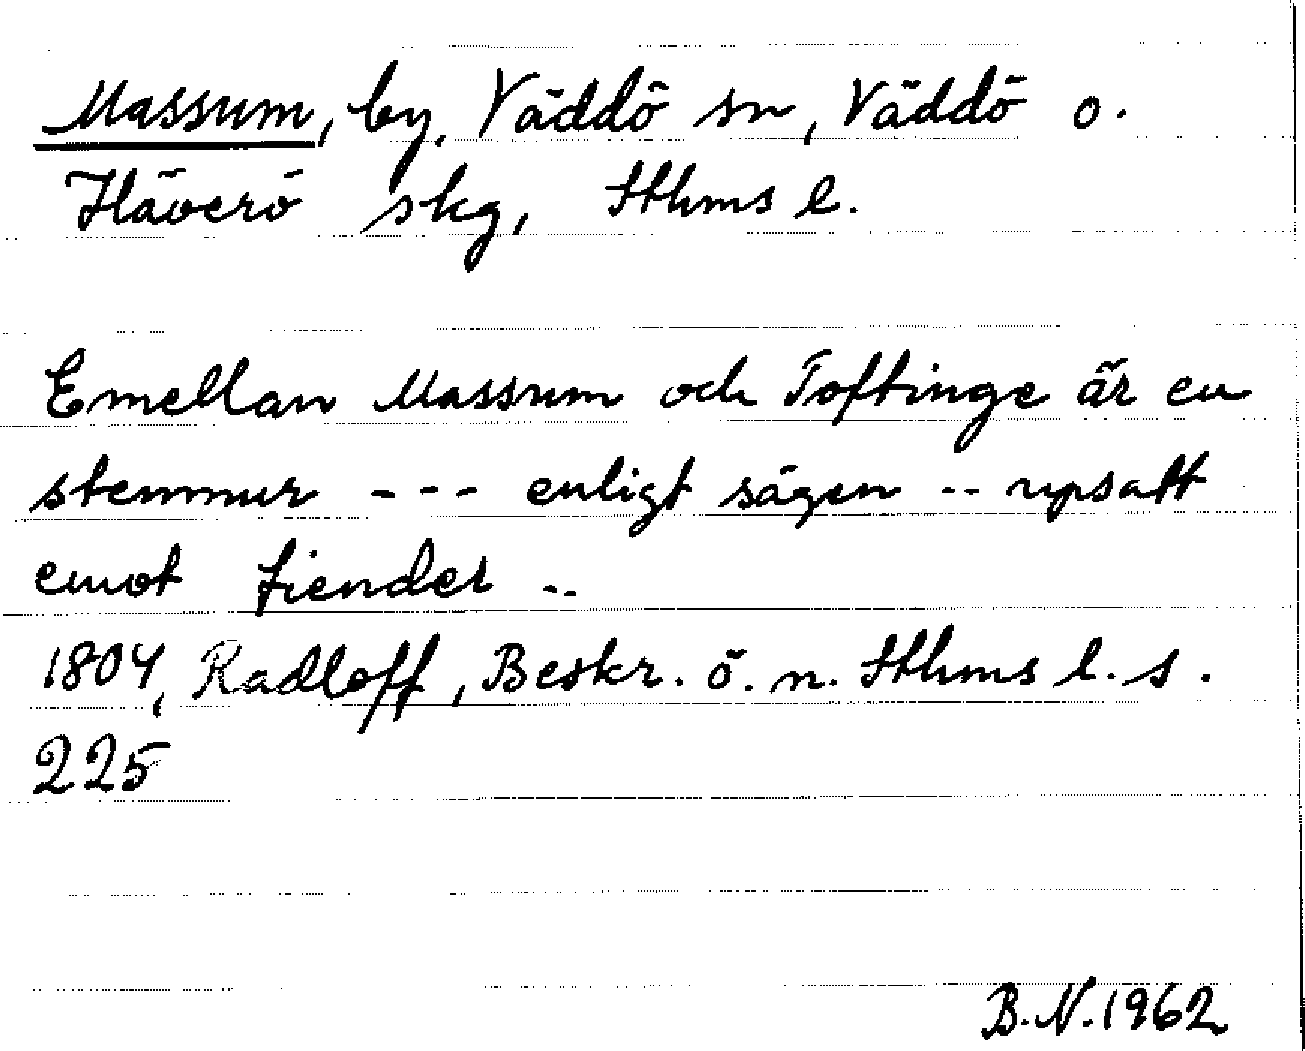 Massum, by, Väddö sn, Väddö o.
Häverö skg, Sthms l.
Emellan Massum och Toftinge är en
stenmur --- enligt sägen -- upsatt
emot fiender --
1804, Radloff, Beskr. ö. n. Sthms l. s.
225
B.N.1962